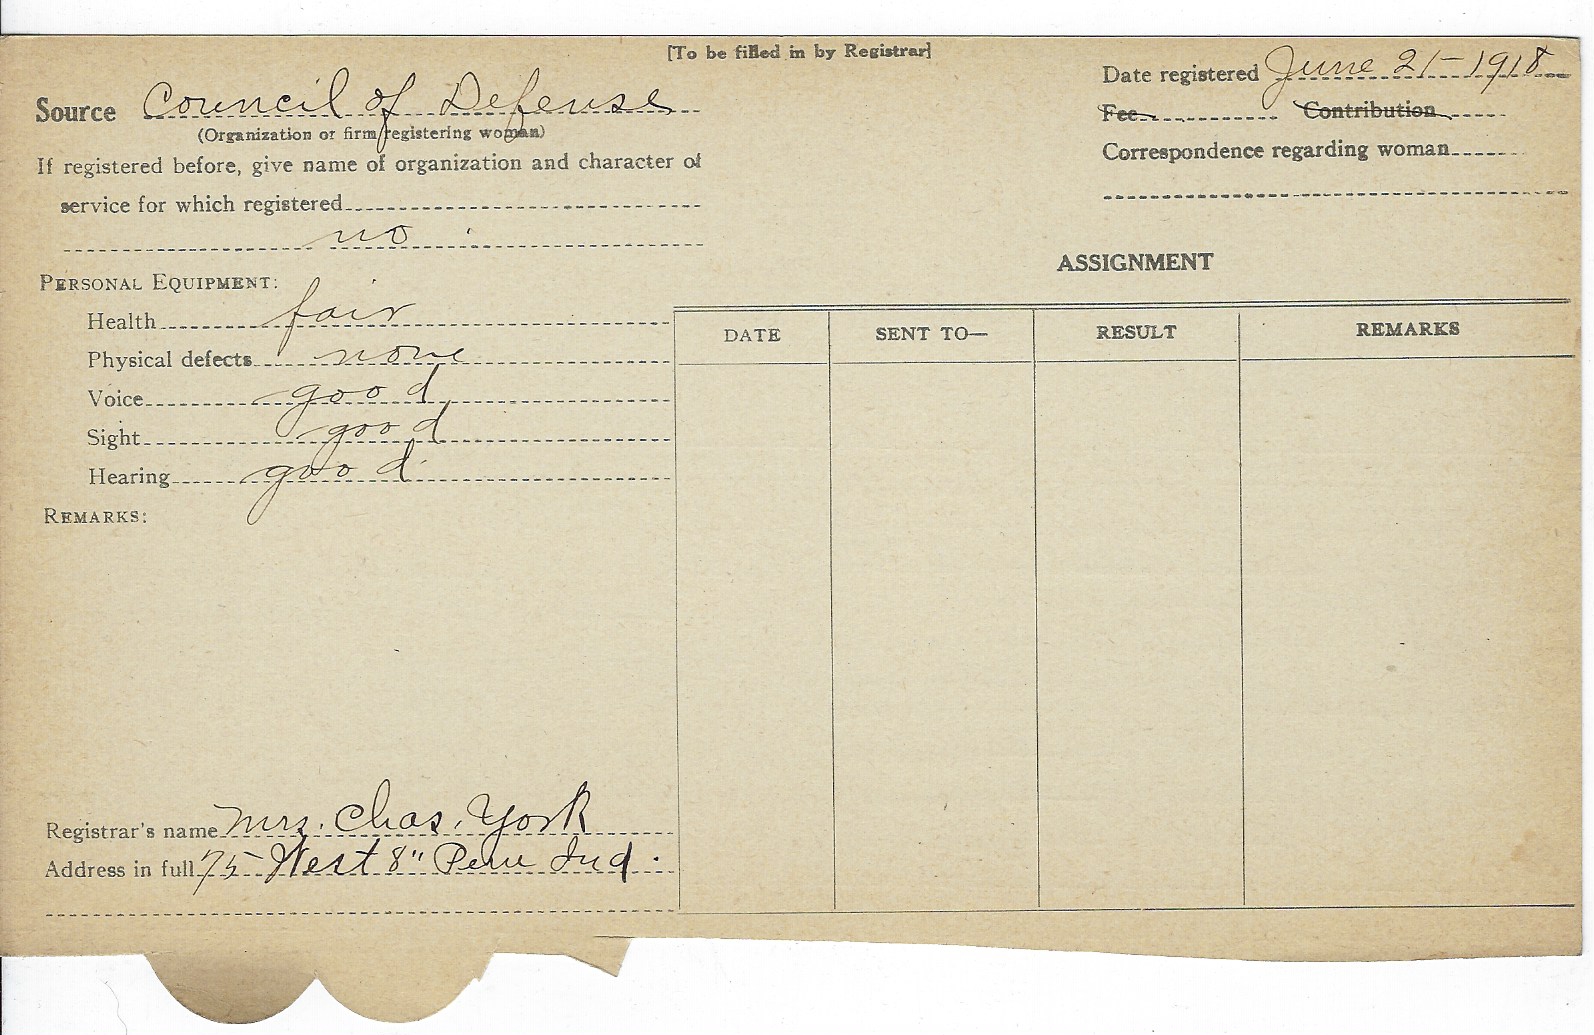 [To be filled in by Registrar]
Source Council of Defense
(Organization or firm registering woman)
If registered before, give name of organization and character of
service for which registered
no
PERSONAL EQUIPMENT:
Health fair
Physical defects none
Voice good
Sight good
Hearing good
REMARKS:
Registrar's name Mrs. Chas. York
Address in full 75 West 8" Peru Ind.
Date registered June 21-1918
Fee Contribution
Correspondence regarding woman
ASSIGNMENT
DATE SENT TO— RESULT REMARKS